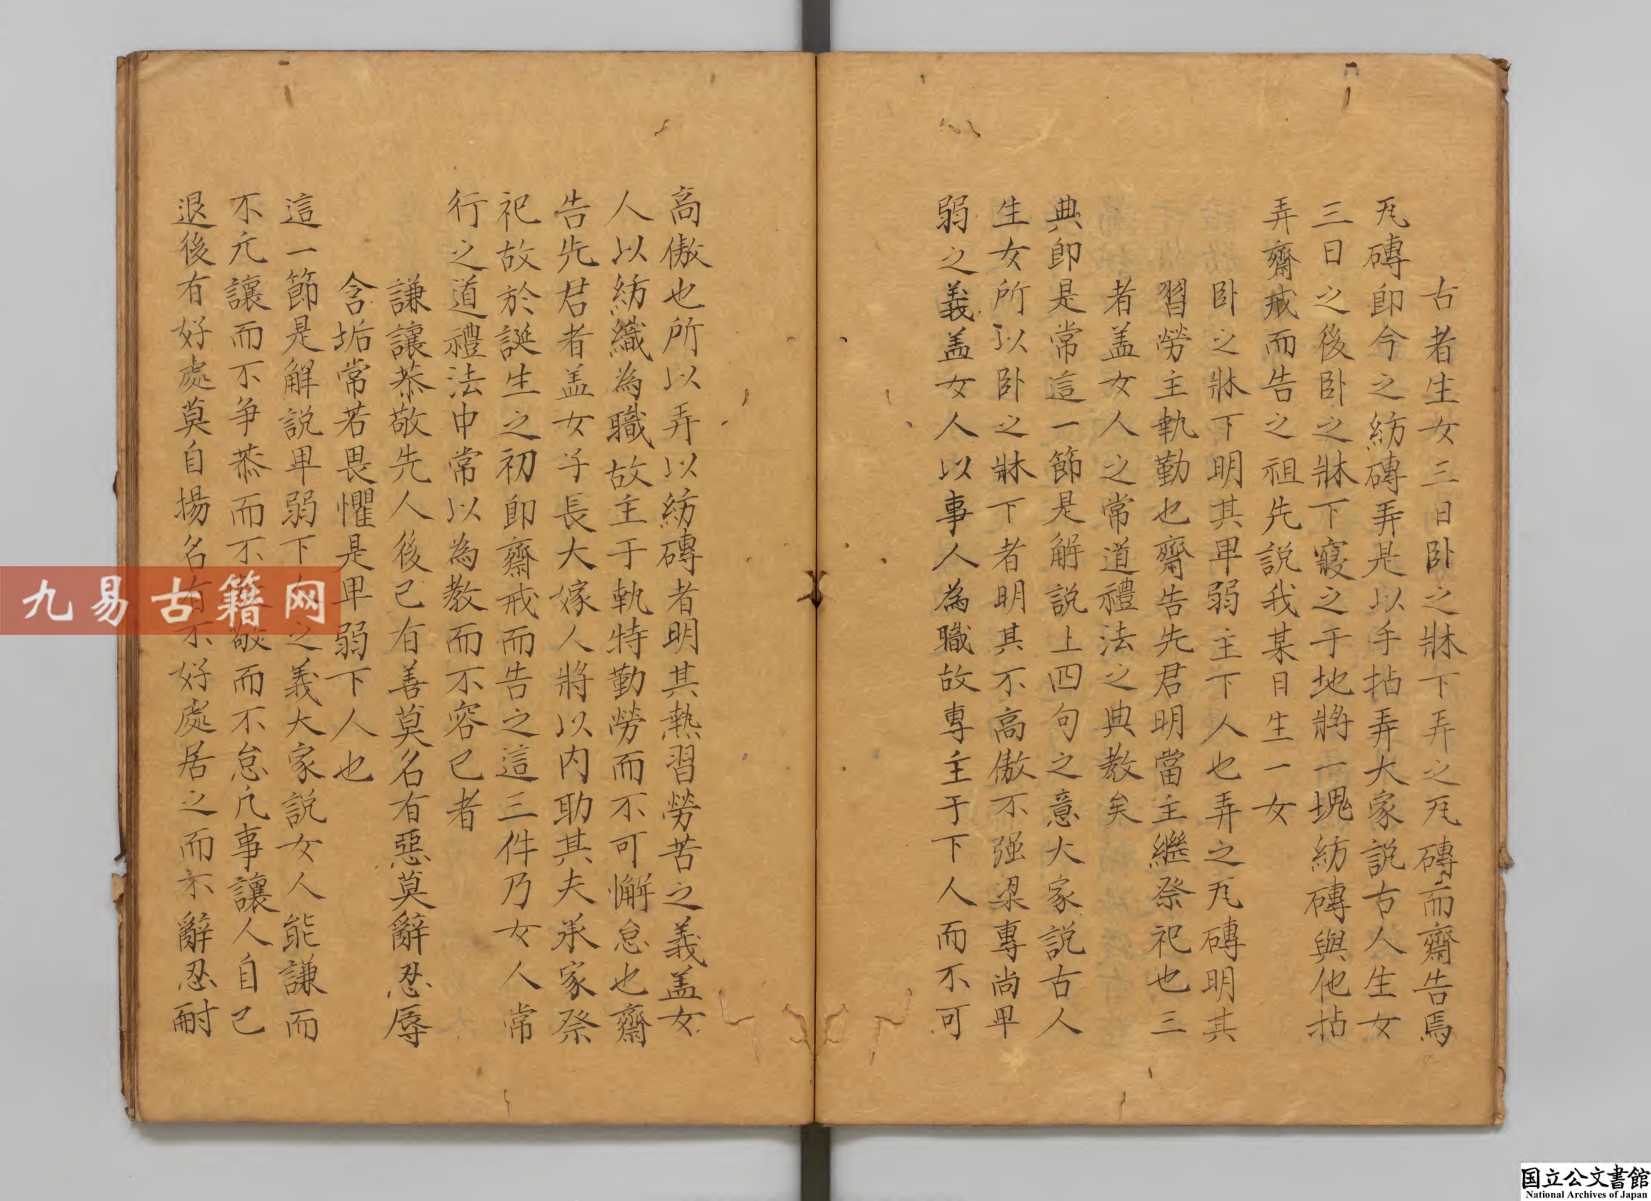 古者生女三日卧之牀下弄之瓦磚而齋告焉
瓦磚即今之紡磚弄是以手拈弄大家説古人生女
三日之後卧之牀下寢之于地將一塊紡磚與他拈
弄齋戒而告之祖先説我某日生一女
卧之牀下明其卑弱主下人也弄之瓦磚明其
習勞主執勤也齋告先君明當主繼祭祀也三
者盖女人之常道禮法之典教矣
典即是常這一節是解説上四句之意大家説古人
生女所以卧之牀下者明其不高傲不强梁專尚卑
弱之義盖女人以事人為職故專主于下人而不可
高傲也所以弄以紡磚者明其熱習勞苦之義盖女
人以紡織為職故主于執特勤勞而不可懈怠也齋
告先君者盖女子長大嫁人將以内助其夫承家祭
祀故於誕生之初即齋戒而告之這三件乃女人常
行之道禮法中常以為教而不容已者
謙讓恭敬先人後己有善莫名有惡莫辭忍辱
含垢常若畏懼是卑弱下人也
這一節是解説卑弱下之義大家説女人能謙而
不亢讓而不争恭而不敬而不怠凡事讓人自己
退後有好處莫自揚名有不好處居之而不辭忍耐
九易古籍网
国立公文書館
National Archives of Japan